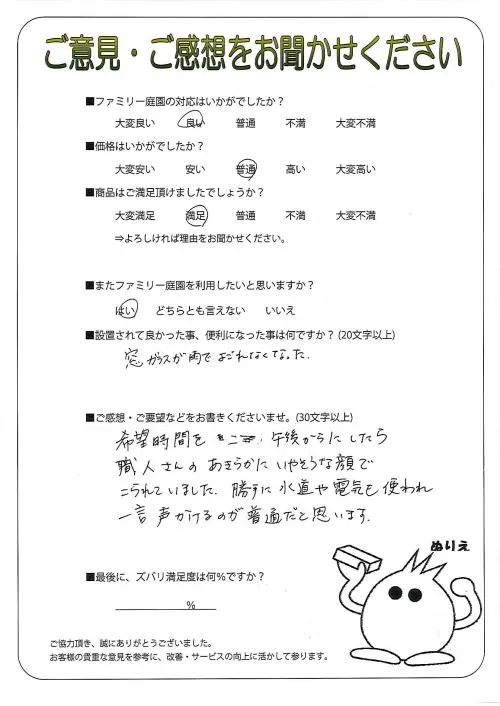 ご意見・ご感想をお聞かせください
■ファミリー庭園の対応はいかがでしたか？
大変良い 良い 普通 不満 大変不満
■価格はいかがでしたか？
大変安い 安い 普通 高い 大変高い
■商品はご満足頂けましたでしょうか？
大変満足 満足 普通 不満 大変不満
⇒よろしければ理由をお聞かせください。
■またファミリー庭園を利用したいと思いますか？
はい どちらとも言えない いいえ
■設置されて良かった事、便利になった事は何ですか？(20文字以上)
窓ガラスが雨でよごれなくなった.
■ご感想・ご要望などをお書きくださいませ。(30文字以上)
希望時間を 午後からにしたら
職人さんのあきらかにいやそうな顔で
こられていました. 勝手に水道や電気も使われ
一言声かけるのが普通だと思います.
ぬりえ
■最後に、ズバリ満足度は何%ですか？
%
ご協力頂き、誠にありがとうございました。
お客様の貴重な意見を参考に、改善・サービスの向上に活かして参ります。